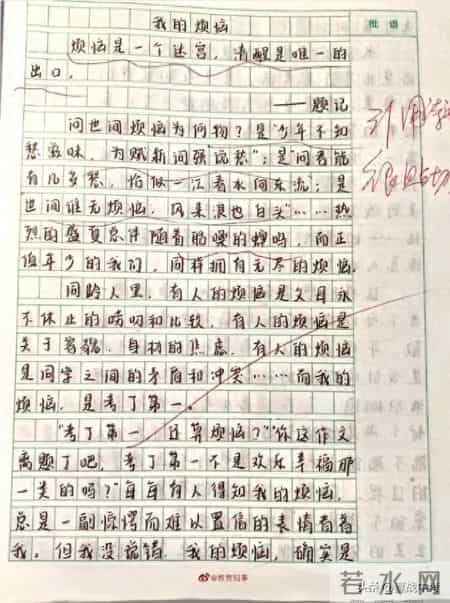 我的烦恼
批语
烦恼是一个迷宫，清醒是唯一的
出口。
——题记
问世间烦恼为何物？是“少年不知
愁滋味，为赋新词强说愁”；是“问君能
有几多愁，恰似一江春水向东流”；是
世间谁无烦恼，风来浪也白头”……热
烈的盛夏总伴随着聒噪的蝉鸣，而正
值年少的我们，同样拥有无尽的烦恼。
同龄人里，有人的烦恼是父母永
不休止的唠叨和比较，有人的烦恼是
关于容貌、身材的焦虑，有人的烦恼
是同学之间的矛盾和冲突……而我的
烦恼，是考了第一。
“考了第一，还算烦恼？”“你这作文
离题了吧，考了第一不是欢乐幸福那
一类的吗？”每每有人得知我的烦恼，
总是一副惊愕而难以置信的表情看着
我，但我没说错，我的烦恼，确实是
引用
很贴切
@教育知事
若水网